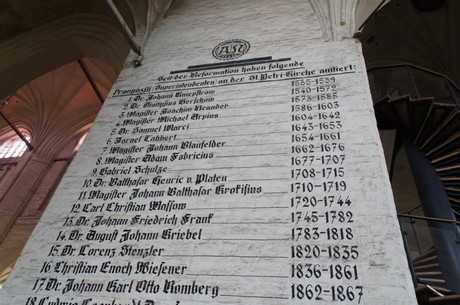 Seit der Reformation haben folgende
Praepositi, Superintendenten, an der St. Petri-Kirche amtiert:
1 Dr. Johann Knepstro 1535-1539
2 Dr. Dionysius Gerschow 1540-1572
3 Magister Joachim Neander 1573-1585
4 Magister Michael Arpius 1586-1603
5 Dr. Samuel Marci 1604-1642
6 Israel Tabbert 1643-1653
7 Magister Johann Blaufelder 1654-1661
8 Magister Adam Fabricius 1662-1676
9 Gabriel Schulze 1677-1707
10 Dr. Balthasar Henric v. Platen 1708-1715
11 Magister Johann Balthasar Krokisius 1710-1719
12 Carl Christian Massow 1720-1744
13 Dr. Johann Friedrich Frank 1745-1782
14 Dr. August Johann Griebel 1783-1818
15 Dr. Lorenz Stenzler 1820-1835
16 Christian Enoch Ziesener 1836-1861
17 Dr. Johann Karl Otto Romberg 1862-1867
18 Ludwig